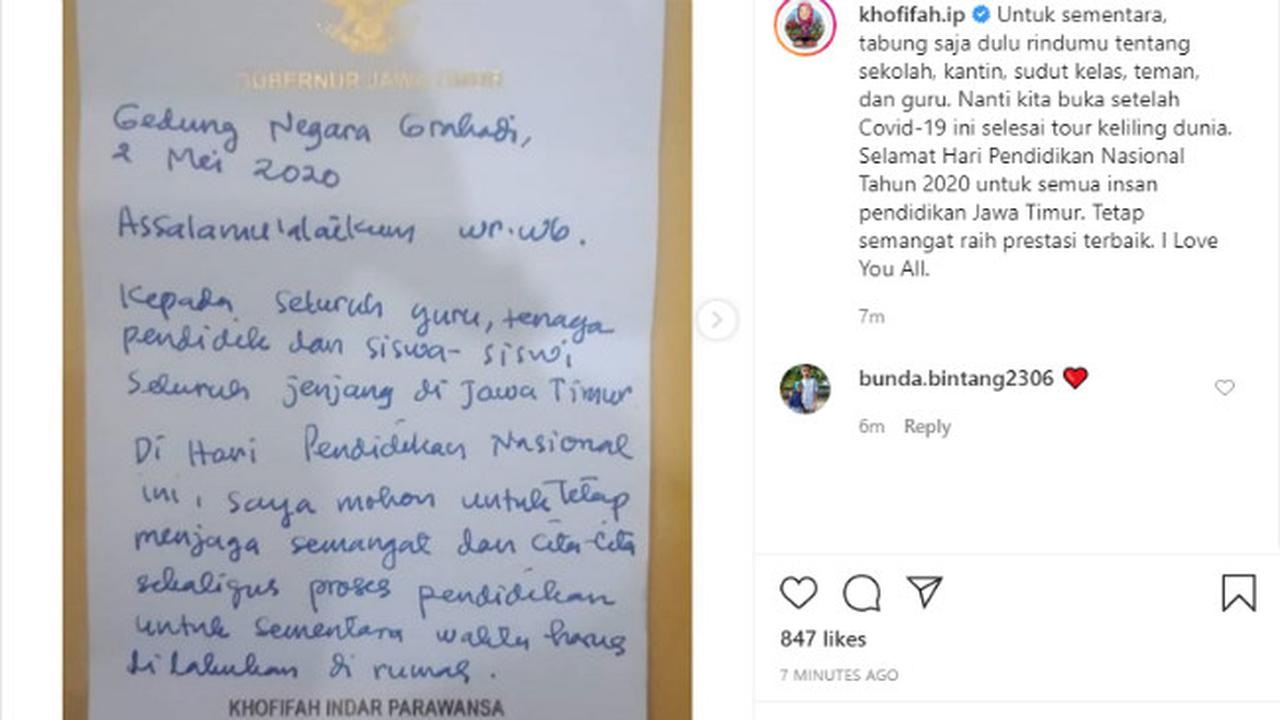 GUBERNUR JAWA TIMUR
Gedung Negara Grahadi,
2 Mei 2020
Assalamu'alaikum wr.wb.
Kepada seluruh guru, tenaga
pendidik dan siswa-siswi
seluruh jenjang di Jawa Timur
Di Hari Pendidikan Nasional
ini, saya mohon untuk tetap
menjaga semangat dan cita-cita
sekaligus proses pendidikan
untuk sementara waktu harus
di lakukan di rumah.
KHOFIFAH INDAR PARAWANSA
khofifah.ip Untuk sementara,
tabung saja dulu rindumu tentang
sekolah, kantin, sudut kelas, teman,
dan guru. Nanti kita buka setelah
Covid-19 ini selesai tour keliling dunia.
Selamat Hari Pendidikan Nasional
Tahun 2020 untuk semua insan
pendidikan Jawa Timur. Tetap
semangat raih prestasi terbaik. I Love
You All.
7m
bunda.bintang2306 ❤️
6m Reply
847 likes
7 MINUTES AGO